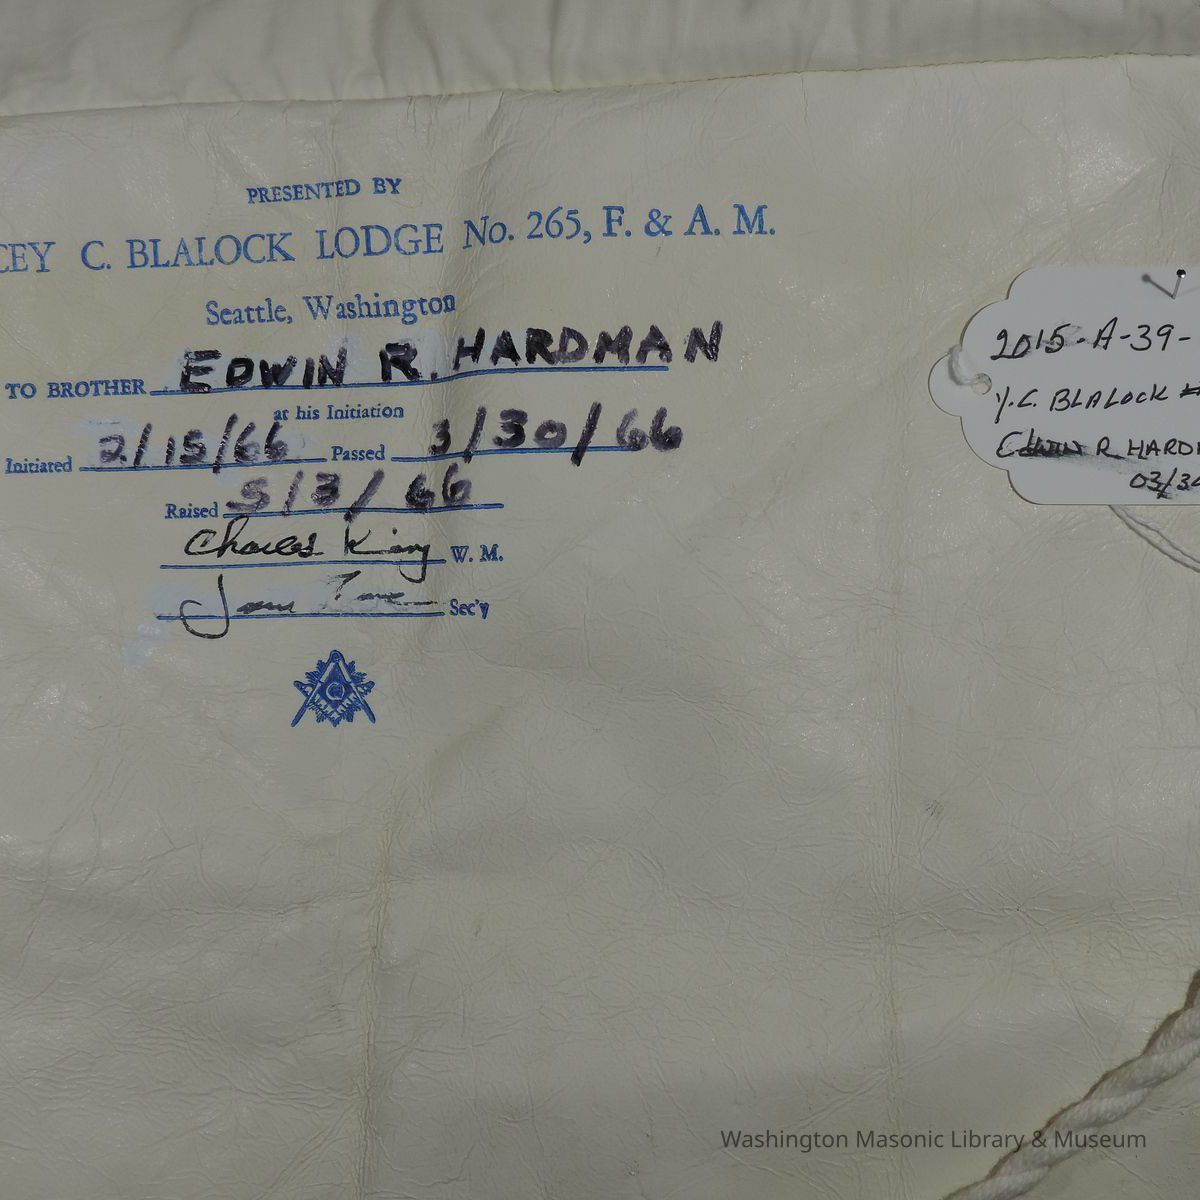 PRESENTED BY
CEY C. BLALOCK LODGE No. 265, F. & A. M.
Seattle, Washington
TO BROTHER EDWIN R. HARDMAN
at his Initiation
Initiated 2/15/66 Passed 3/30/66
Raised 5/3/66
Charles King W. M.
Sec'y
G
2015-A-39-
Y.C. BLALOCK #
EDWIN R HARD
03/30
Washington Masonic Library & Museum